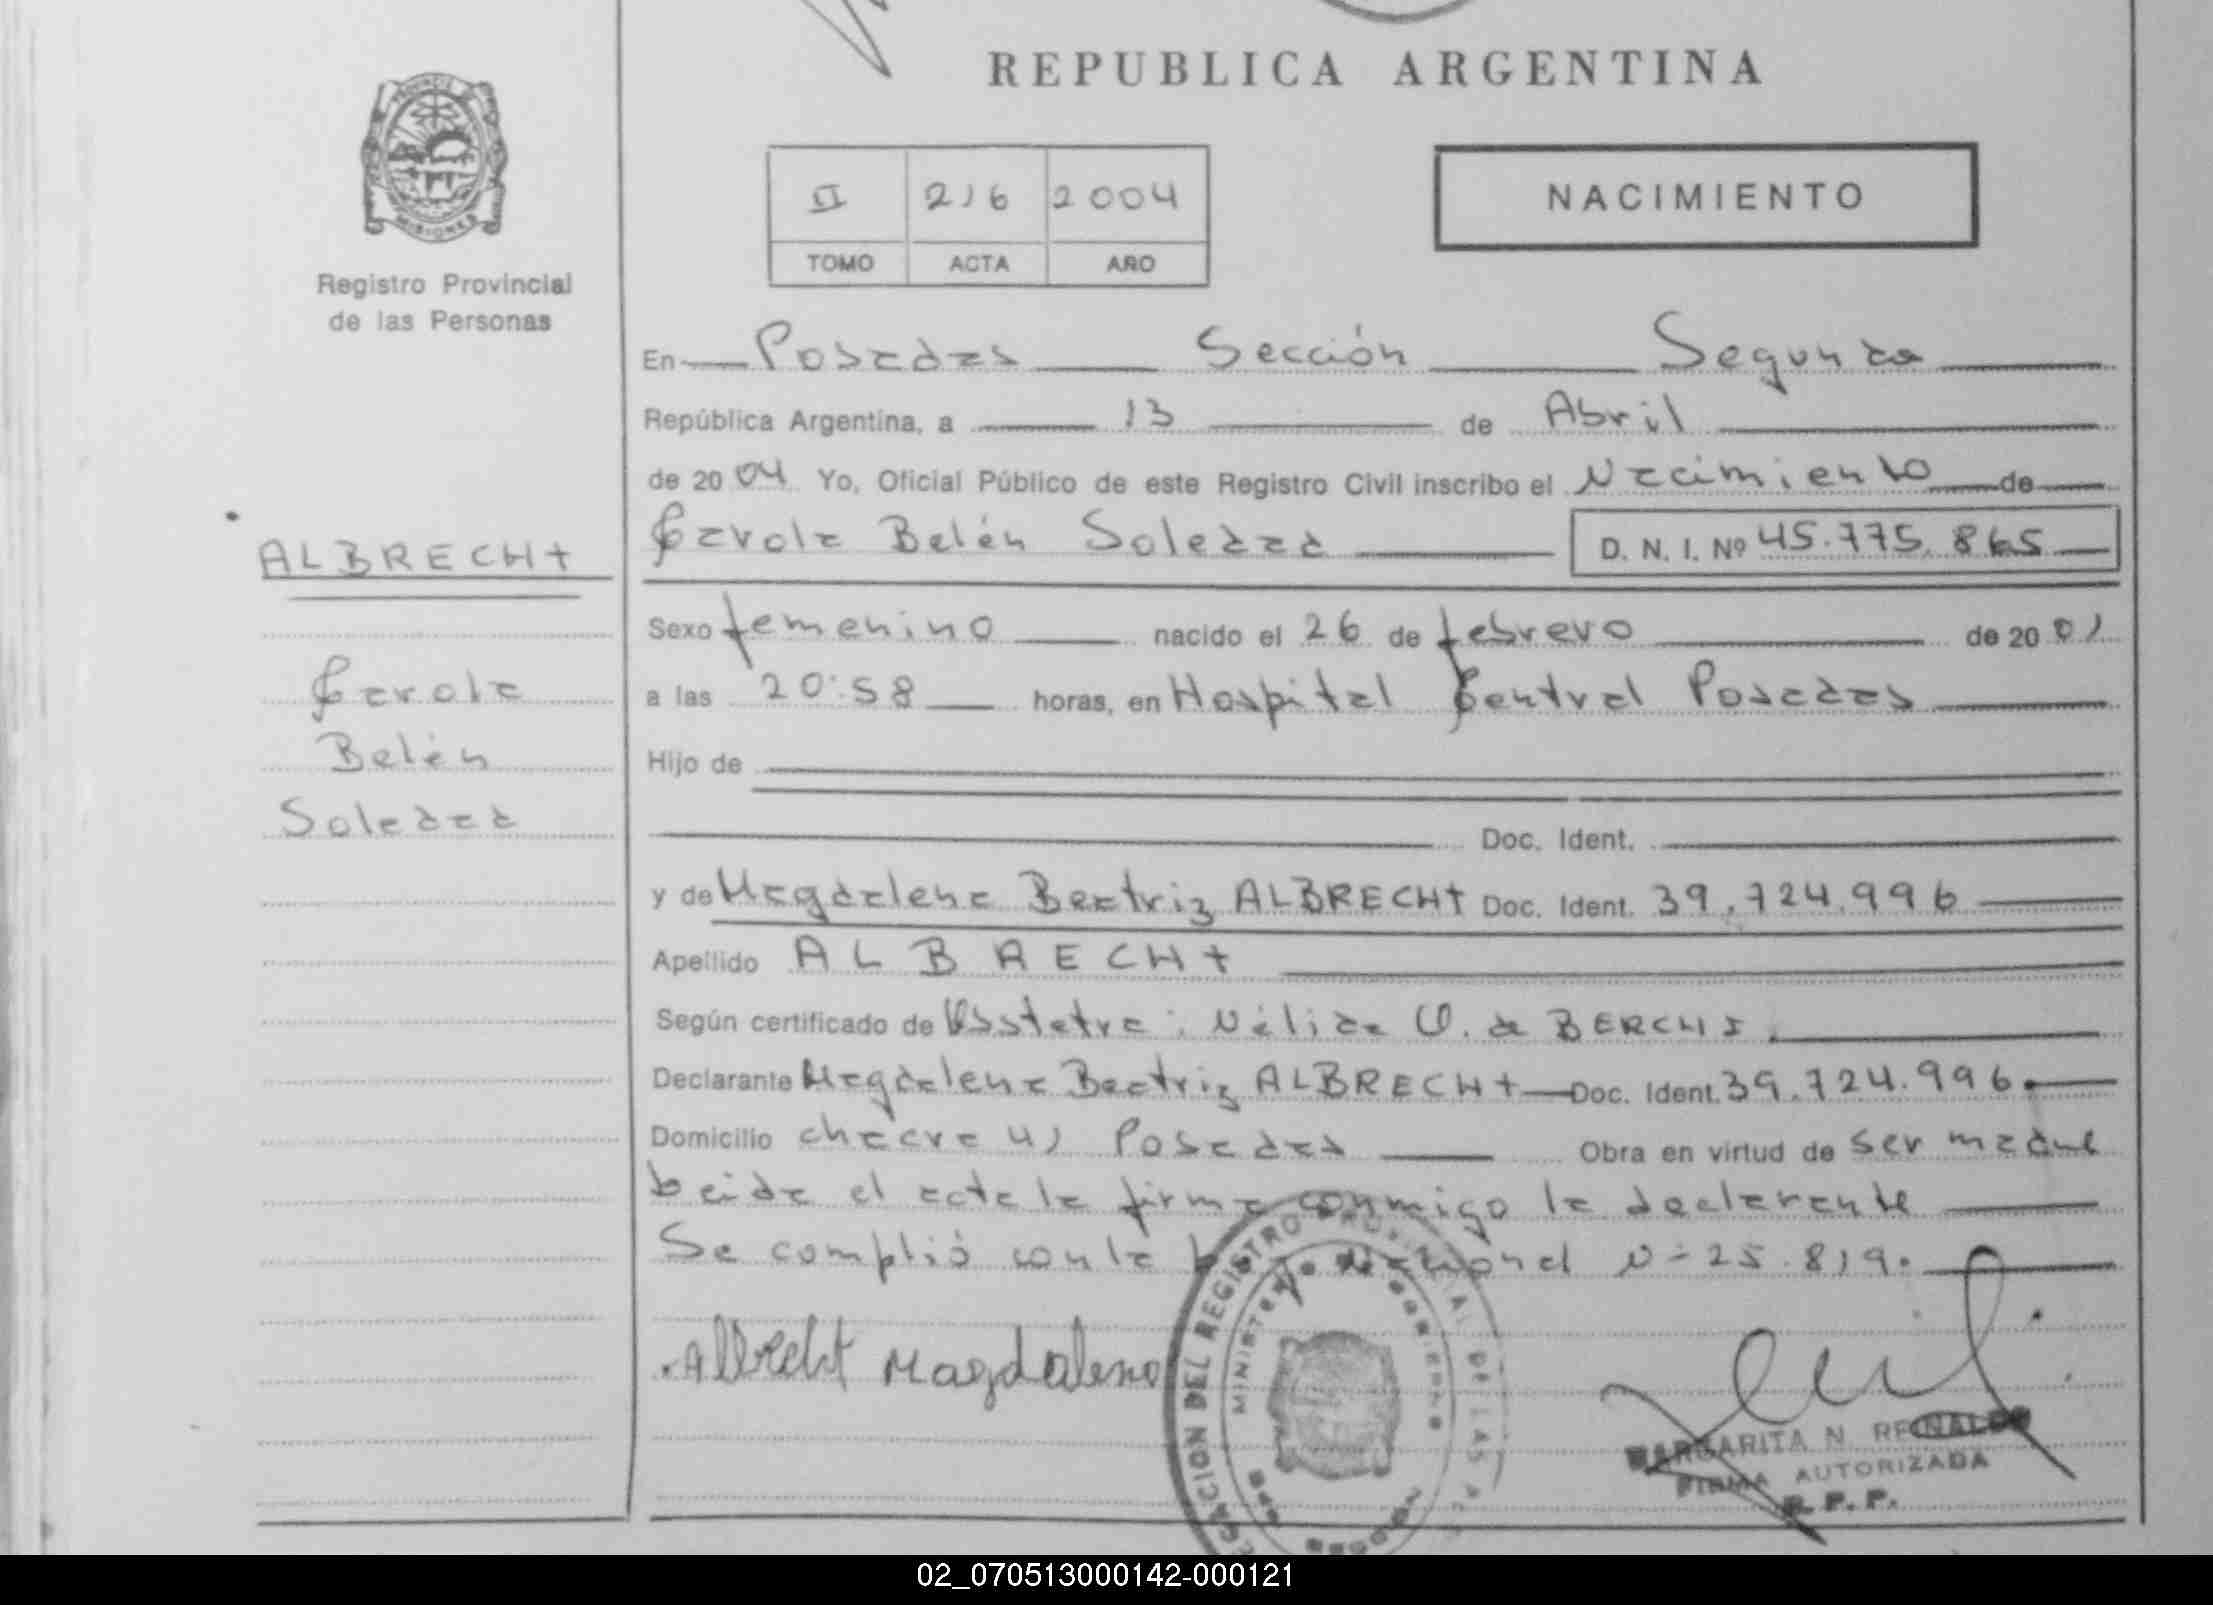 REPUBLICA ARGENTINA
PROVINCIA DE MISIONES
Registro Provincial
de las Personas
II 216 2004
TOMO ACTA AÑO
NACIMIENTO
En Posadas Sección Segunda
República Argentina, a 13 de Abril
de 2004 Yo, Oficial Público de este Registro Civil inscribo el Nacimiento de
Carola Belén Soledad D. N. I. Nº 45.775.865
ALBRECHt
Carola
Belén
Soledad
Sexo femenino nacido el 26 de febrero de 2001
a las 20:58 horas, en Hospital Central Posadas
Hijo de
Doc. Ident.
y de Magdalena Beatriz ALBRECHt Doc. Ident. 39.724.996
Apellido ALBRECHt
Según certificado de Obstetra: Nélida O. de BERCHI.
Declarante Magdalena Beatriz ALBRECHt Doc. Ident. 39.724.996
Domicilio chacra 41 Posadas Obra en virtud de ser madre
Leida el acta la firma conmigo la declarante
Se complió con la Ley Nacional N= 25.819.
Albrecht Magdalena
DEL REGISTRO PROVINCIAL DE LAS
MINISTERIO DE GOBIERNO
MARGARITA N. REINALDO
FIRMA AUTORIZADA
R. P. P.
02_070513000142-000121